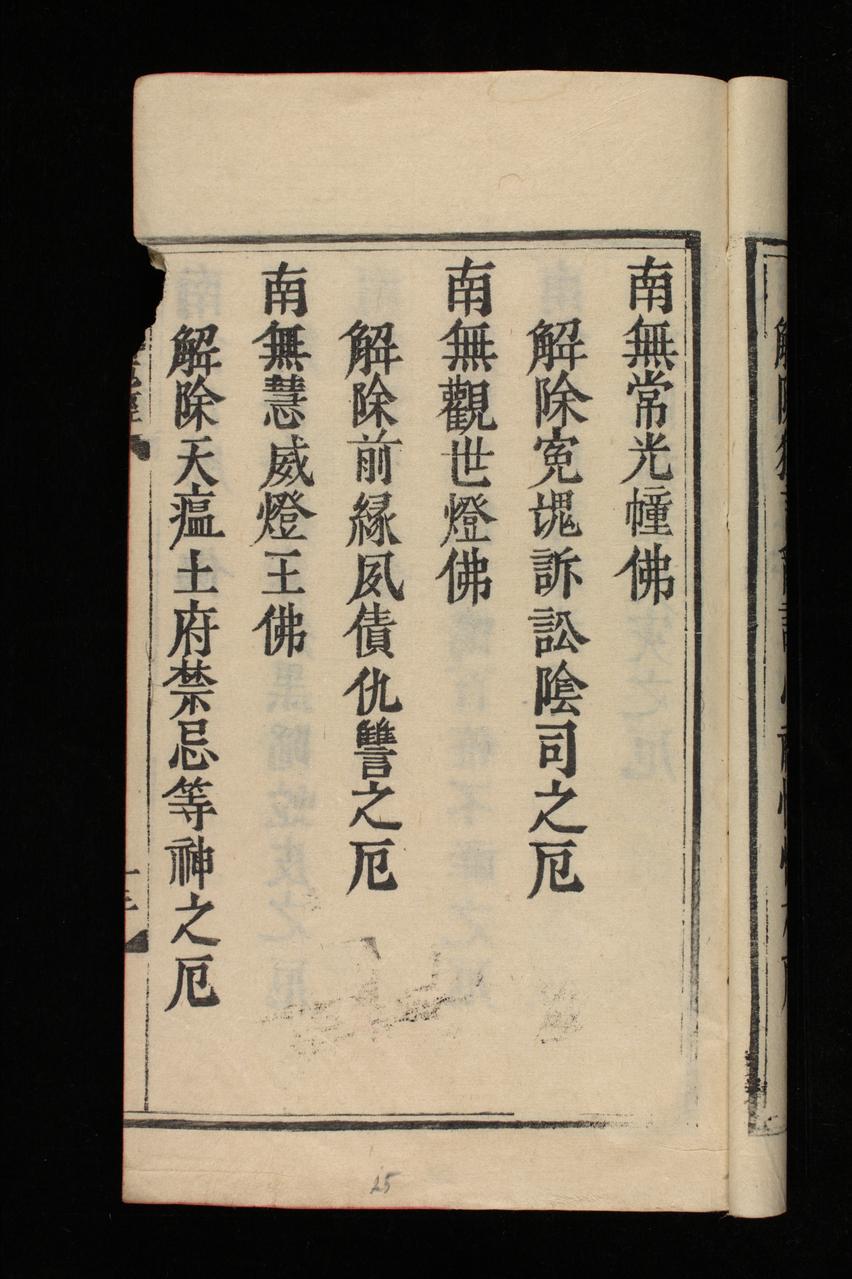 南無常光幢佛
解除寃魂訴訟陰司之厄
南無觀世燈佛
解除前緣夙債仇讐之厄
南無慧威燈王佛
解除天瘟土府禁忌等神之厄
25